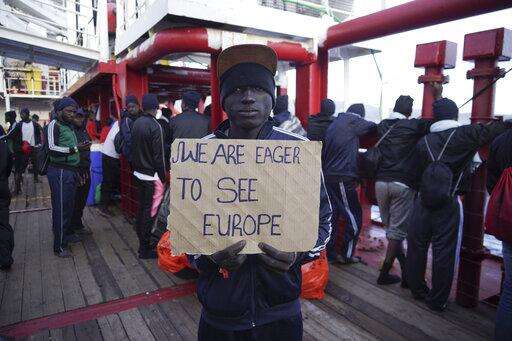 WE ARE EAGER
TO SEE
EUROPE